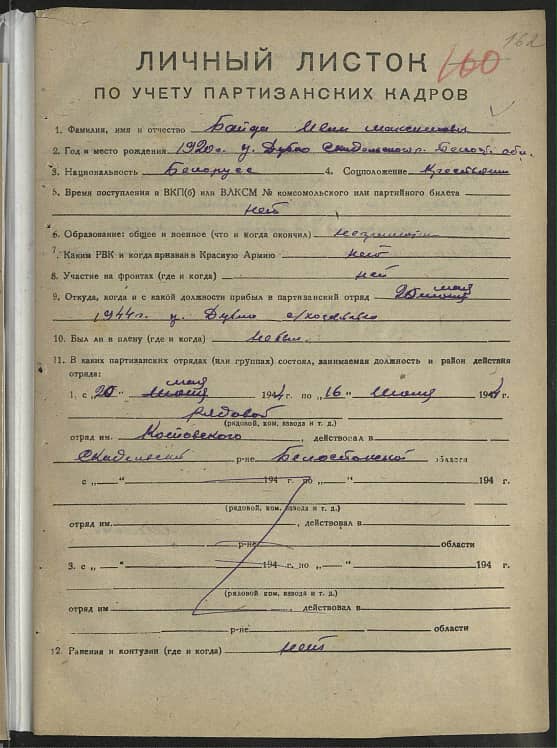 162
ЛИЧНЫЙ ЛИСТОК 160
ПО УЧЕТУ ПАРТИЗАНСКИХ КАДРОВ
1. Фамилия, имя и отчество Байда
2. Год и место рождения 1920 г. д. Дубно Скидельского р. Белост. обл.
3. Национальность Белорусс 4. Соцположение
5. Время поступления в ВКП(б) или ВЛКСМ № комсомольского или партийного билета
нет
6. Образование: общее и военное (что и когда окончил)
7. Каким РВК и когда призван в Красную Армию нет
8. Участие на фронтах (где и когда) нет
9. Откуда, когда и с какой должности прибыл в партизанский отряд 20 мая
1944 г. д. Дубно
10. Был ли в плену (где и когда) не был.
11. В каких партизанских отрядах (или группах) состоял, занимаемая должность и район действия
отряда:
1. с „20" мая 1944 г. по „16" июля 1944 г.
рядовой
(рядовой, ком. взвода и т. д.)
отряд им. Костовского, действовал в
Скидельский р-не Белостокской области
с „ — " 194 г. по „ — " 194 г.
(рядовой, ком. взвода и т. д.)
отряд им. , действовал в
р-не области
3. с „ — " 194 г. по „ — " 194 г.
(рядовой, ком. взвода и т. д.)
отряд им , действовал в
р-не области
12. Ранения и контузии (где и когда) нет